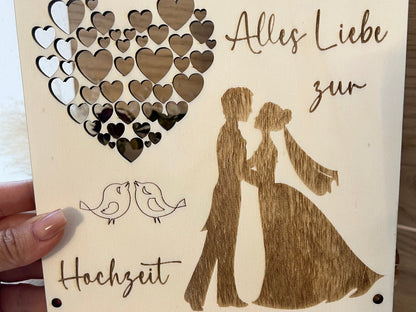 Alles Liebe
zur
Hochzeit